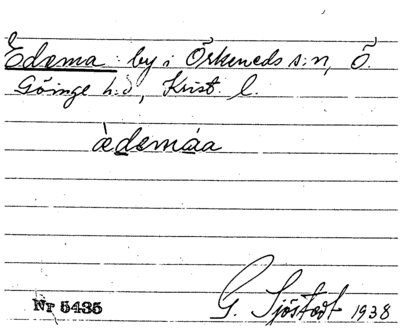 Edema: by i Örkeneds s:n, Ö.
Göinge h:d, Krist. l.
ædemáa
Nr 5435
G. Sjöstedt 1938